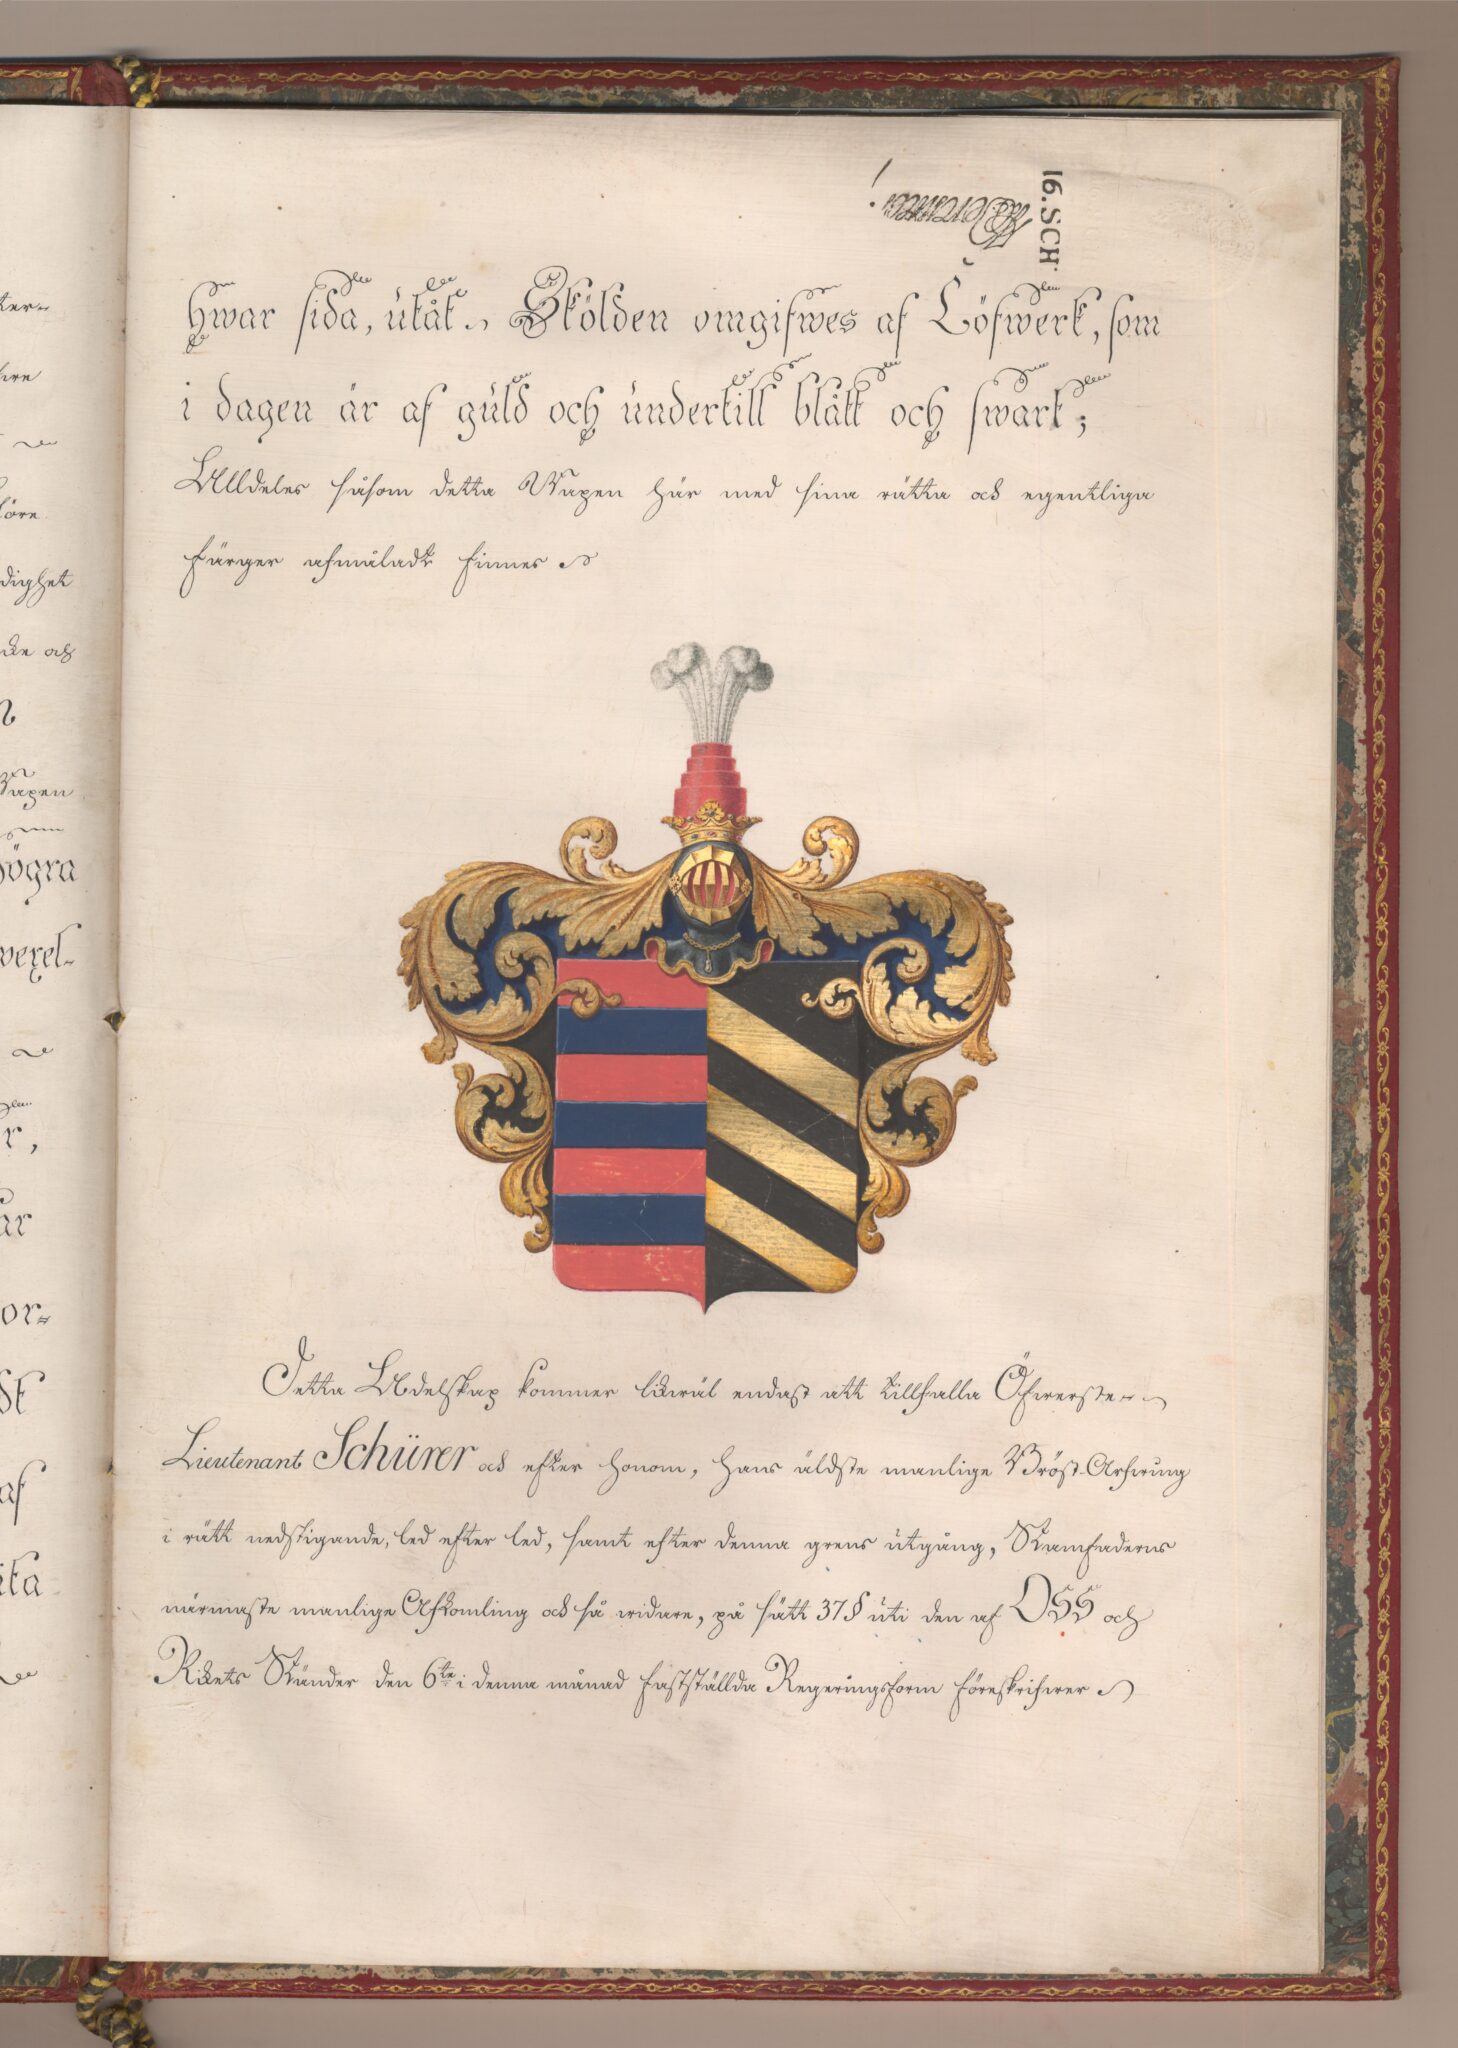 16. SCH
hwar sida, utåt. Skölden omgifwes af Löfwerk, som
i dagen är af guld och undertill blått och swart;
Alldeles såsom detta Wapen här med sina rätta och egentliga
färger afmåladt finnes
Detta Adelskap kommer likwäl endast att tillfalla Öfwerste-
Lieutenant Schürer och efter honom, hans äldste manlige Bröst-Arfwing
i rätt nedstigande, led efter led, samt efter denna grens utgång, Stamfaderns
närmaste manlige Afkomling och så widare, på sätt 37 § uti den af OSS och
Rikets Ständer den 6te i denna månad fastställda Regeringsform föreskrifwer
ter-
digket
Wapen
högra
wexel-
r,
or-
af